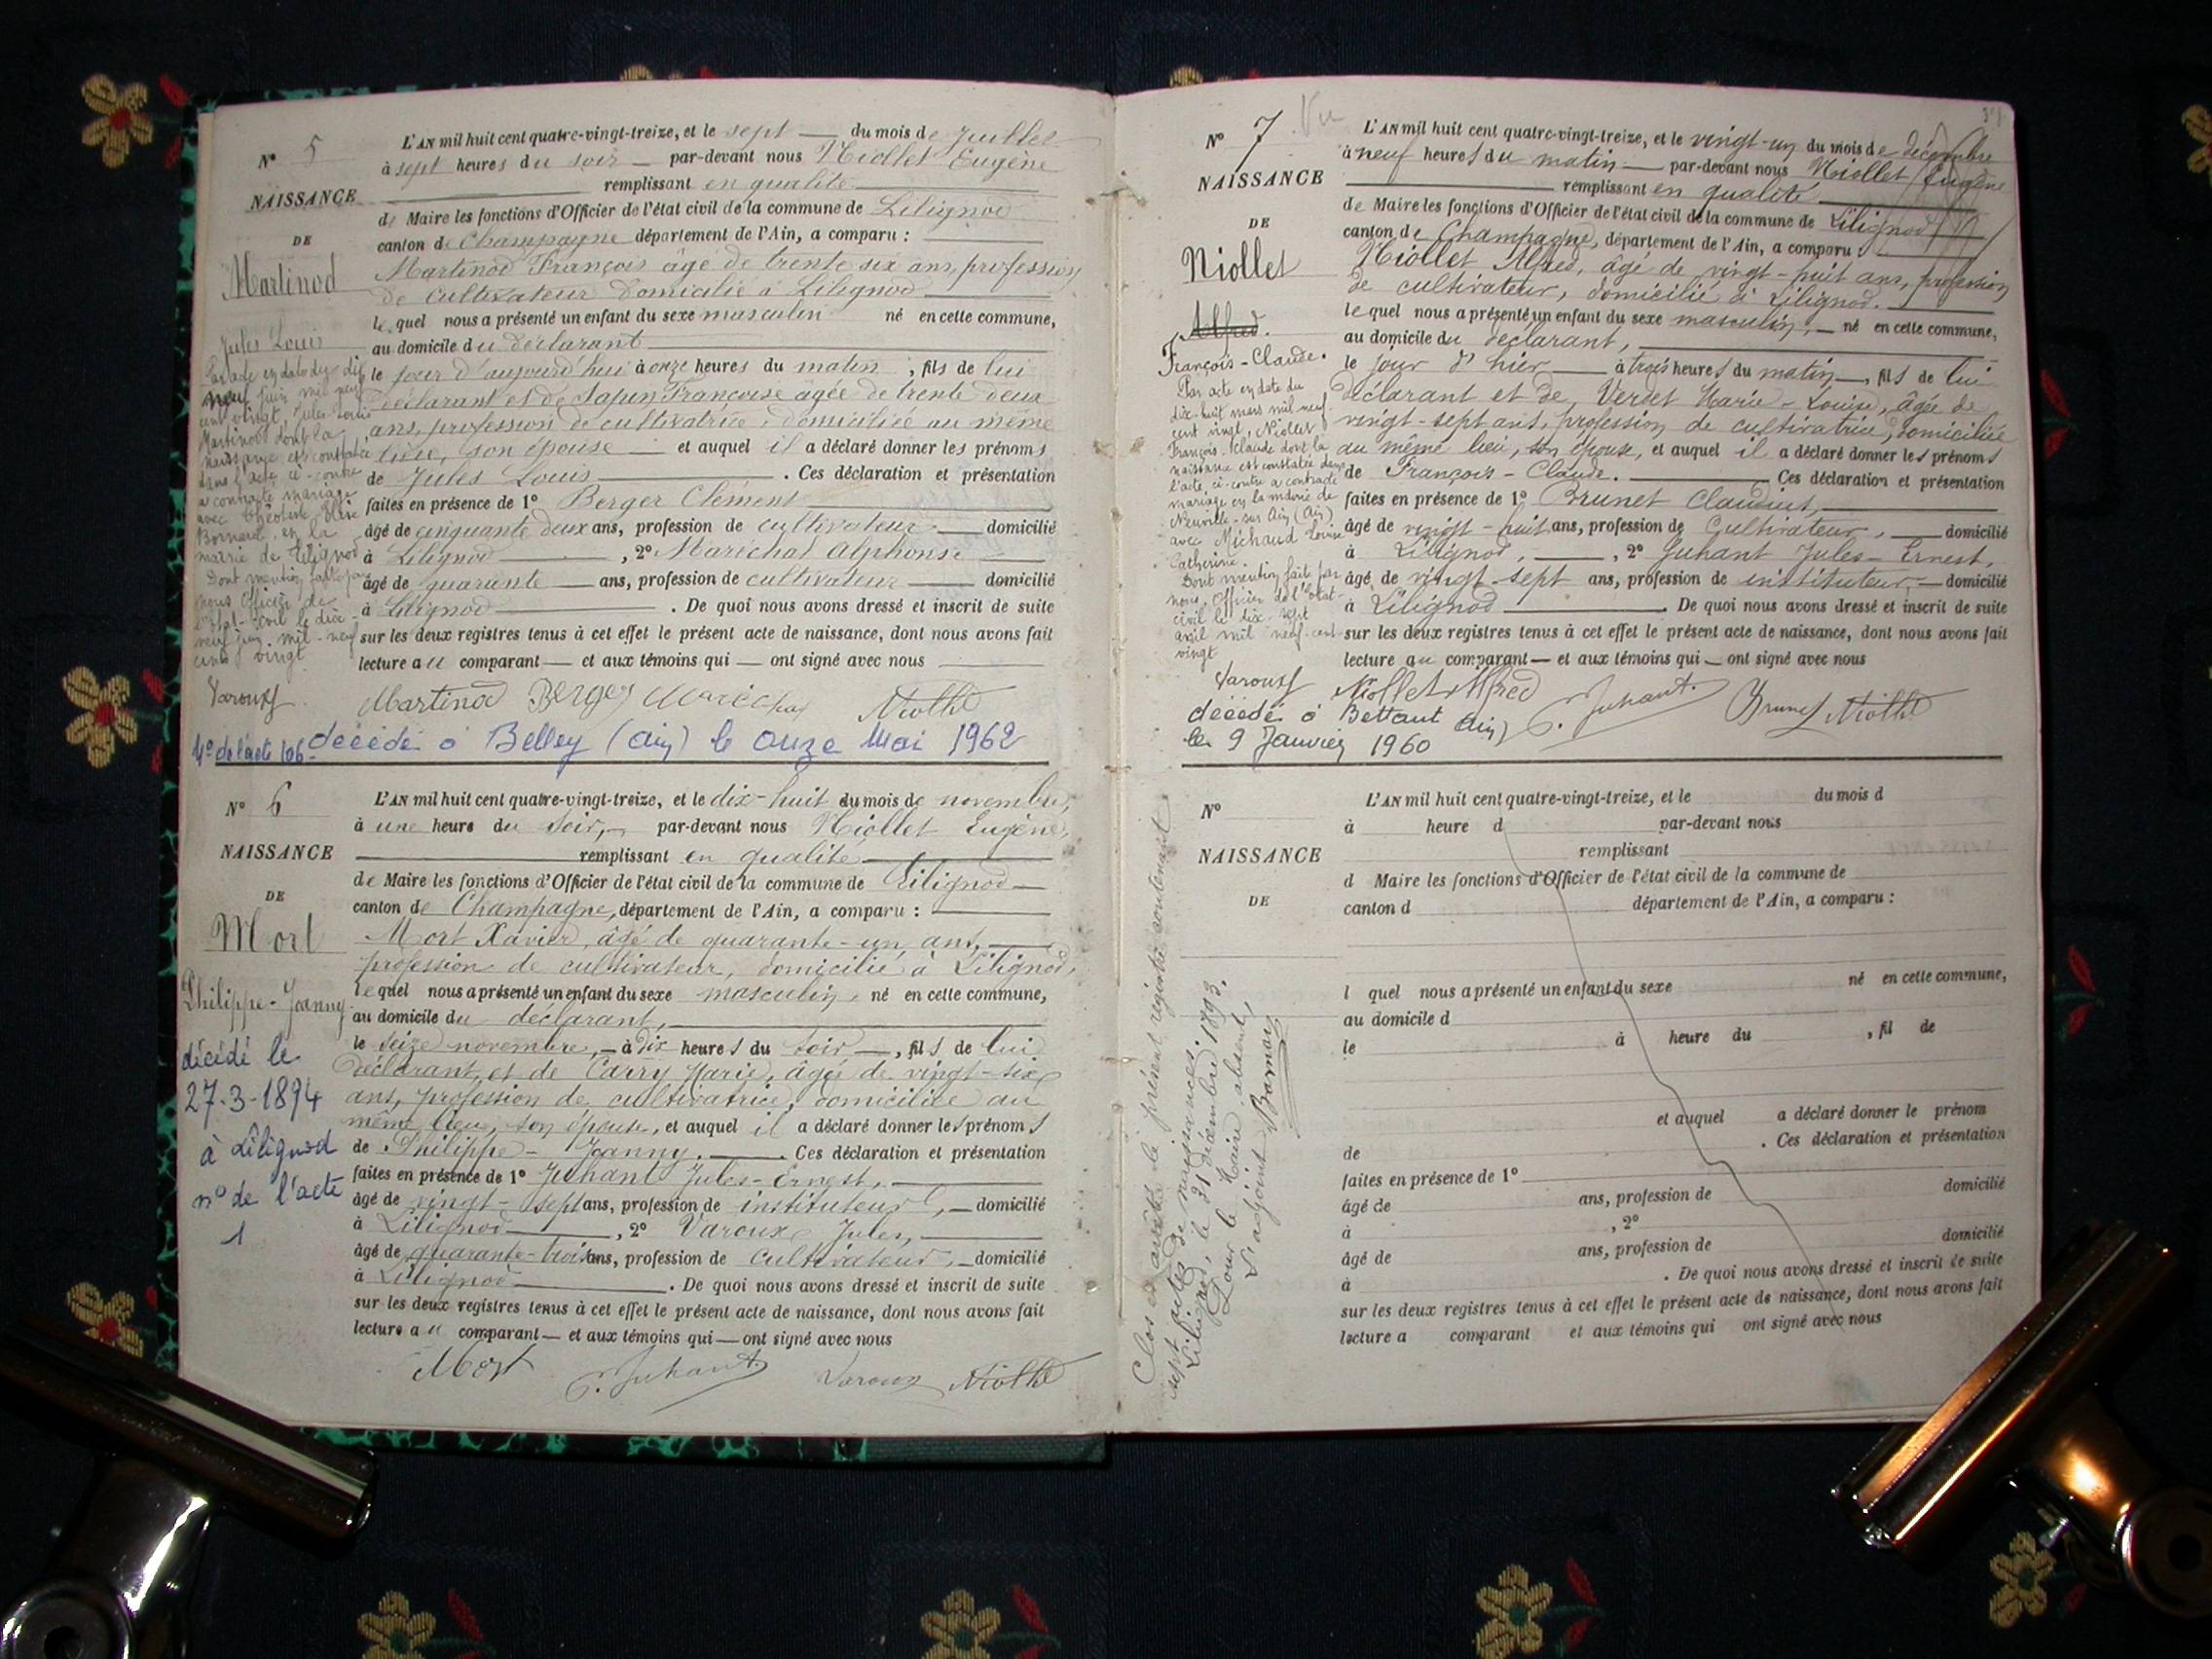 N° 5
NAISSANCE
DE
Martinod
Jules Louis
Par acte en date du dix
neuf juin mil neuf
cent vingt, Jules Louis
Martinod dont la
naissance est constatée
dans l'acte ci-contre
a contracté mariage
avec
en la
mairie de Lilignod
Dont mention faite par
nous Officier de
l'Etat-Civil le dix-
neuf juin mil-neuf
cent vingt
Varoux
L'AN mil huit cent quatre-vingt-treize, et le sept du mois de Juillet
à sept heures du soir par-devant nous Niollet Eugène
remplissant en qualité
de Maire les fonctions d'Officier de l'état civil de la commune de Lilignod
canton de Champagne département de l'Ain, a comparu :
Martinod François âgé de trente six ans, profession
de cultivateur domicilié à Lilignod
lequel nous a présenté un enfant du sexe masculin né en cette commune,
au domicile du déclarant
le jour d'aujourd'hui à onze heures du matin, fils de lui
déclarant et de Sapin Françoise âgée de trente deux
ans, profession de cultivatrice, domiciliée au même
lieu, son épouse et auquel il a déclaré donner les prénoms
de Jules Louis. Ces déclaration et présentation
faites en présence de 1° Berger Clément
âgé de cinquante deux ans, profession de cultivateur domicilié
à Lilignod, 2° Maréchal Alphonse
âgé de quarante ans, profession de cultivateur domicilié
à Lilignod. De quoi nous avons dressé et inscrit de suite
sur les deux registres tenus à cet effet le présent acte de naissance, dont nous avons fait
lecture au comparant et aux témoins qui ont signé avec nous
Martinod Berger Maréchal Niollet
N° de l'acte 106 décédé à Belley (ain) le onze Mai 1962
N° 6
NAISSANCE
DE
Mort
Philippe-Joanny
décédé le
27-3-1894
à Lilignod
n° de l'acte
1
L'AN mil huit cent quatre-vingt-treize, et le dix-huit du mois de novembre,
à une heure du soir, par-devant nous Niollet Eugène,
remplissant en qualité
de Maire les fonctions d'Officier de l'état civil de la commune de Lilignod
canton de Champagne, département de l'Ain, a comparu :
Mort Xavier, âgé de quarante-un ans,
profession de cultivateur, domicilié à Lilignod,
lequel nous a présenté un enfant du sexe masculin, né en cette commune,
au domicile du déclarant,
le seize novembre, à dix heures du soir, fils de lui
déclarant, et de Carry Marie, âgée de vingt-six
ans, profession de cultivatrice, domiciliée au
même lieu, son épouse, et auquel il a déclaré donner les prénoms
de Philippe-Joanny. Ces déclaration et présentation
faites en présence de 1° Juhant Jules-Ernest,
âgé de vingt-sept ans, profession de instituteur, domicilié
à Lilignod, 2° Varoux Jules,
âgé de quarante-trois ans, profession de cultivateur, domicilié
à Lilignod. De quoi nous avons dressé et inscrit de suite
sur les deux registres tenus à cet effet le présent acte de naissance, dont nous avons fait
lecture au comparant et aux témoins qui ont signé avec nous
Mort J. Juhant Varoux Niollet
N° 7 Vu
NAISSANCE
DE
Niollet
Alfred.
François-Claude.
Par acte en date du
dix-huit mars mil neuf
cent vingt, Niollet
François Claude dont la
naissance est constatée dans
l'acte, ci-contre a contracté
mariage en la mairie de
Neuville-sur Ain (Ain)
avec Michaud Louise
Catherine.
Dont mention fait par
nous, Officier de l'Etat-
civil le dix-sept
avril mil neuf-cent
vingt
Varoux
L'AN mil huit cent quatre-vingt-treize, et le vingt-un du mois de décembre
à neuf heures du matin par-devant nous Niollet Eugène
remplissant en qualité
de Maire les fonctions d'Officier de l'état civil de la commune de Lilignod
canton de Champagne, département de l'Ain, a comparu :
Niollet Alfred, âgé de vingt-huit ans, profession
de cultivateur, domicilié à Lilignod.
lequel nous a présenté un enfant du sexe masculin, né en cette commune,
au domicile du déclarant,
le jour d'hier à trois heures du matin, fils de lui
déclarant et de Verdet Marie-Louise, âgée de
vingt-sept ans, profession de cultivatrice, domiciliée
au même lieu, son épouse, et auquel il a déclaré donner les prénoms
de François-Claude. Ces déclaration et présentation
faites en présence de 1° Brunet Claudius,
âgé de vingt-huit ans, profession de Cultivateur, domicilié
à Lilignod, 2° Juhant Jules-Ernest,
âgé de vingt-sept ans, profession de instituteur, domicilié
à Lilignod. De quoi nous avons dressé et inscrit de suite
sur les deux registres tenus à cet effet le présent acte de naissance, dont nous avons fait
lecture au comparant et aux témoins qui ont signé avec nous
Niollet Alfred J. Juhant. Brunet Niollet
décédé à Bettant (Ain)
le 9 Janvier 1960
N°
NAISSANCE
DE
L'AN mil huit cent quatre-vingt-treize, et le du mois d
à heure d par-devant nous
remplissant
d Maire les fonctions d'Officier de l'état civil de la commune de
canton d département de l'Ain, a comparu :
l quel nous a présenté un enfant du sexe né en cette commune,
au domicile d
le à heure du , fil de
et auquel a déclaré donner le prénom
de . Ces déclaration et présentation
faites en présence de 1°
âgé de ans, profession de domicilié
à , 2°
âgé de ans, profession de domicilié
à . De quoi nous avons dressé et inscrit de suite
sur les deux registres tenus à cet effet le présent acte de naissance, dont nous avons fait
lecture a comparant et aux témoins qui ont signé avec nous
Clos et arrêté le présent registre contenant
sept actes de naissances.
Lilignod, le 31 décembre 1893.
Pour le Maire absent,
L'adjoint